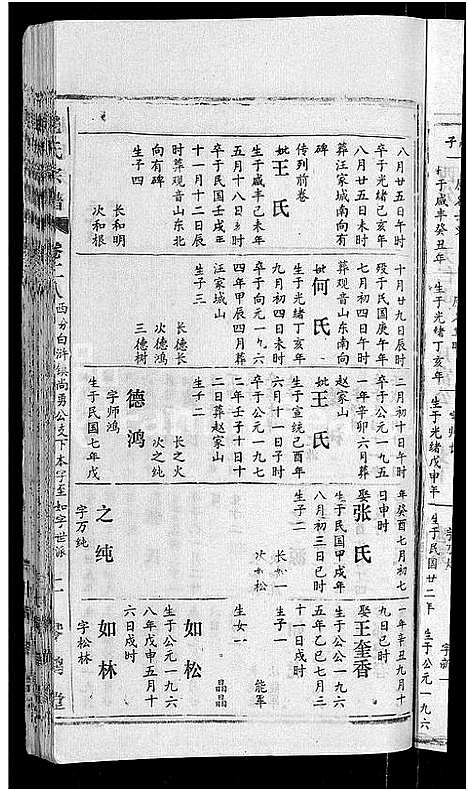 八月廿五日午时
卒于光绪己亥年
八月廿五日未时
葬汪家城南向有
碑
传列前卷
妣王氏
生于咸丰己未年
五月十八日乡时
卒于民国壬戌正
十一月十二日辰
时葬观音山东北
向有碑
生子四
长和明
次和根
十月廿九日辰时
殁于民国庚午年
七月初四日午时
葬观音山东南向
妣何氏
生于光绪丁亥年
九月初四日未时
卒于向元一九六
四年甲辰四月葬
汪家城山
生子三
长德长
次德鸿
三德树
二月初十日午时
卒于公元一九五
一年辛卯六月葬
赵家山
妣王氏
生于宣统己酉年
六月十一日子时
卒于公元一九七
二年壬子十日
二日葬赵家山
生子二
长之火
次之纯
德鸿
字师鸿
生于民国七年戊
年癸酉七月初七
日申时
娶张氏
生于民国甲戌年
八月初三日巳时
生子二
长如一
次如松
之纯
字万纯
一年辛丑九月十
九日巳时
娶王奎香
生于公公一九六
五年乙巳七月三
十一日戌时
生子一
能军
生女一
晶晶
如松
生于公元一九六
八年戊申五月十
六日戌时
如林
字松林
氏宗谱
西分白浒镇尚勇公支下本字至如字世派
子
生于咸丰癸丑年
生于光绪丁亥年
生于光绪戊申年
生于民国廿二年
生于公元一九六